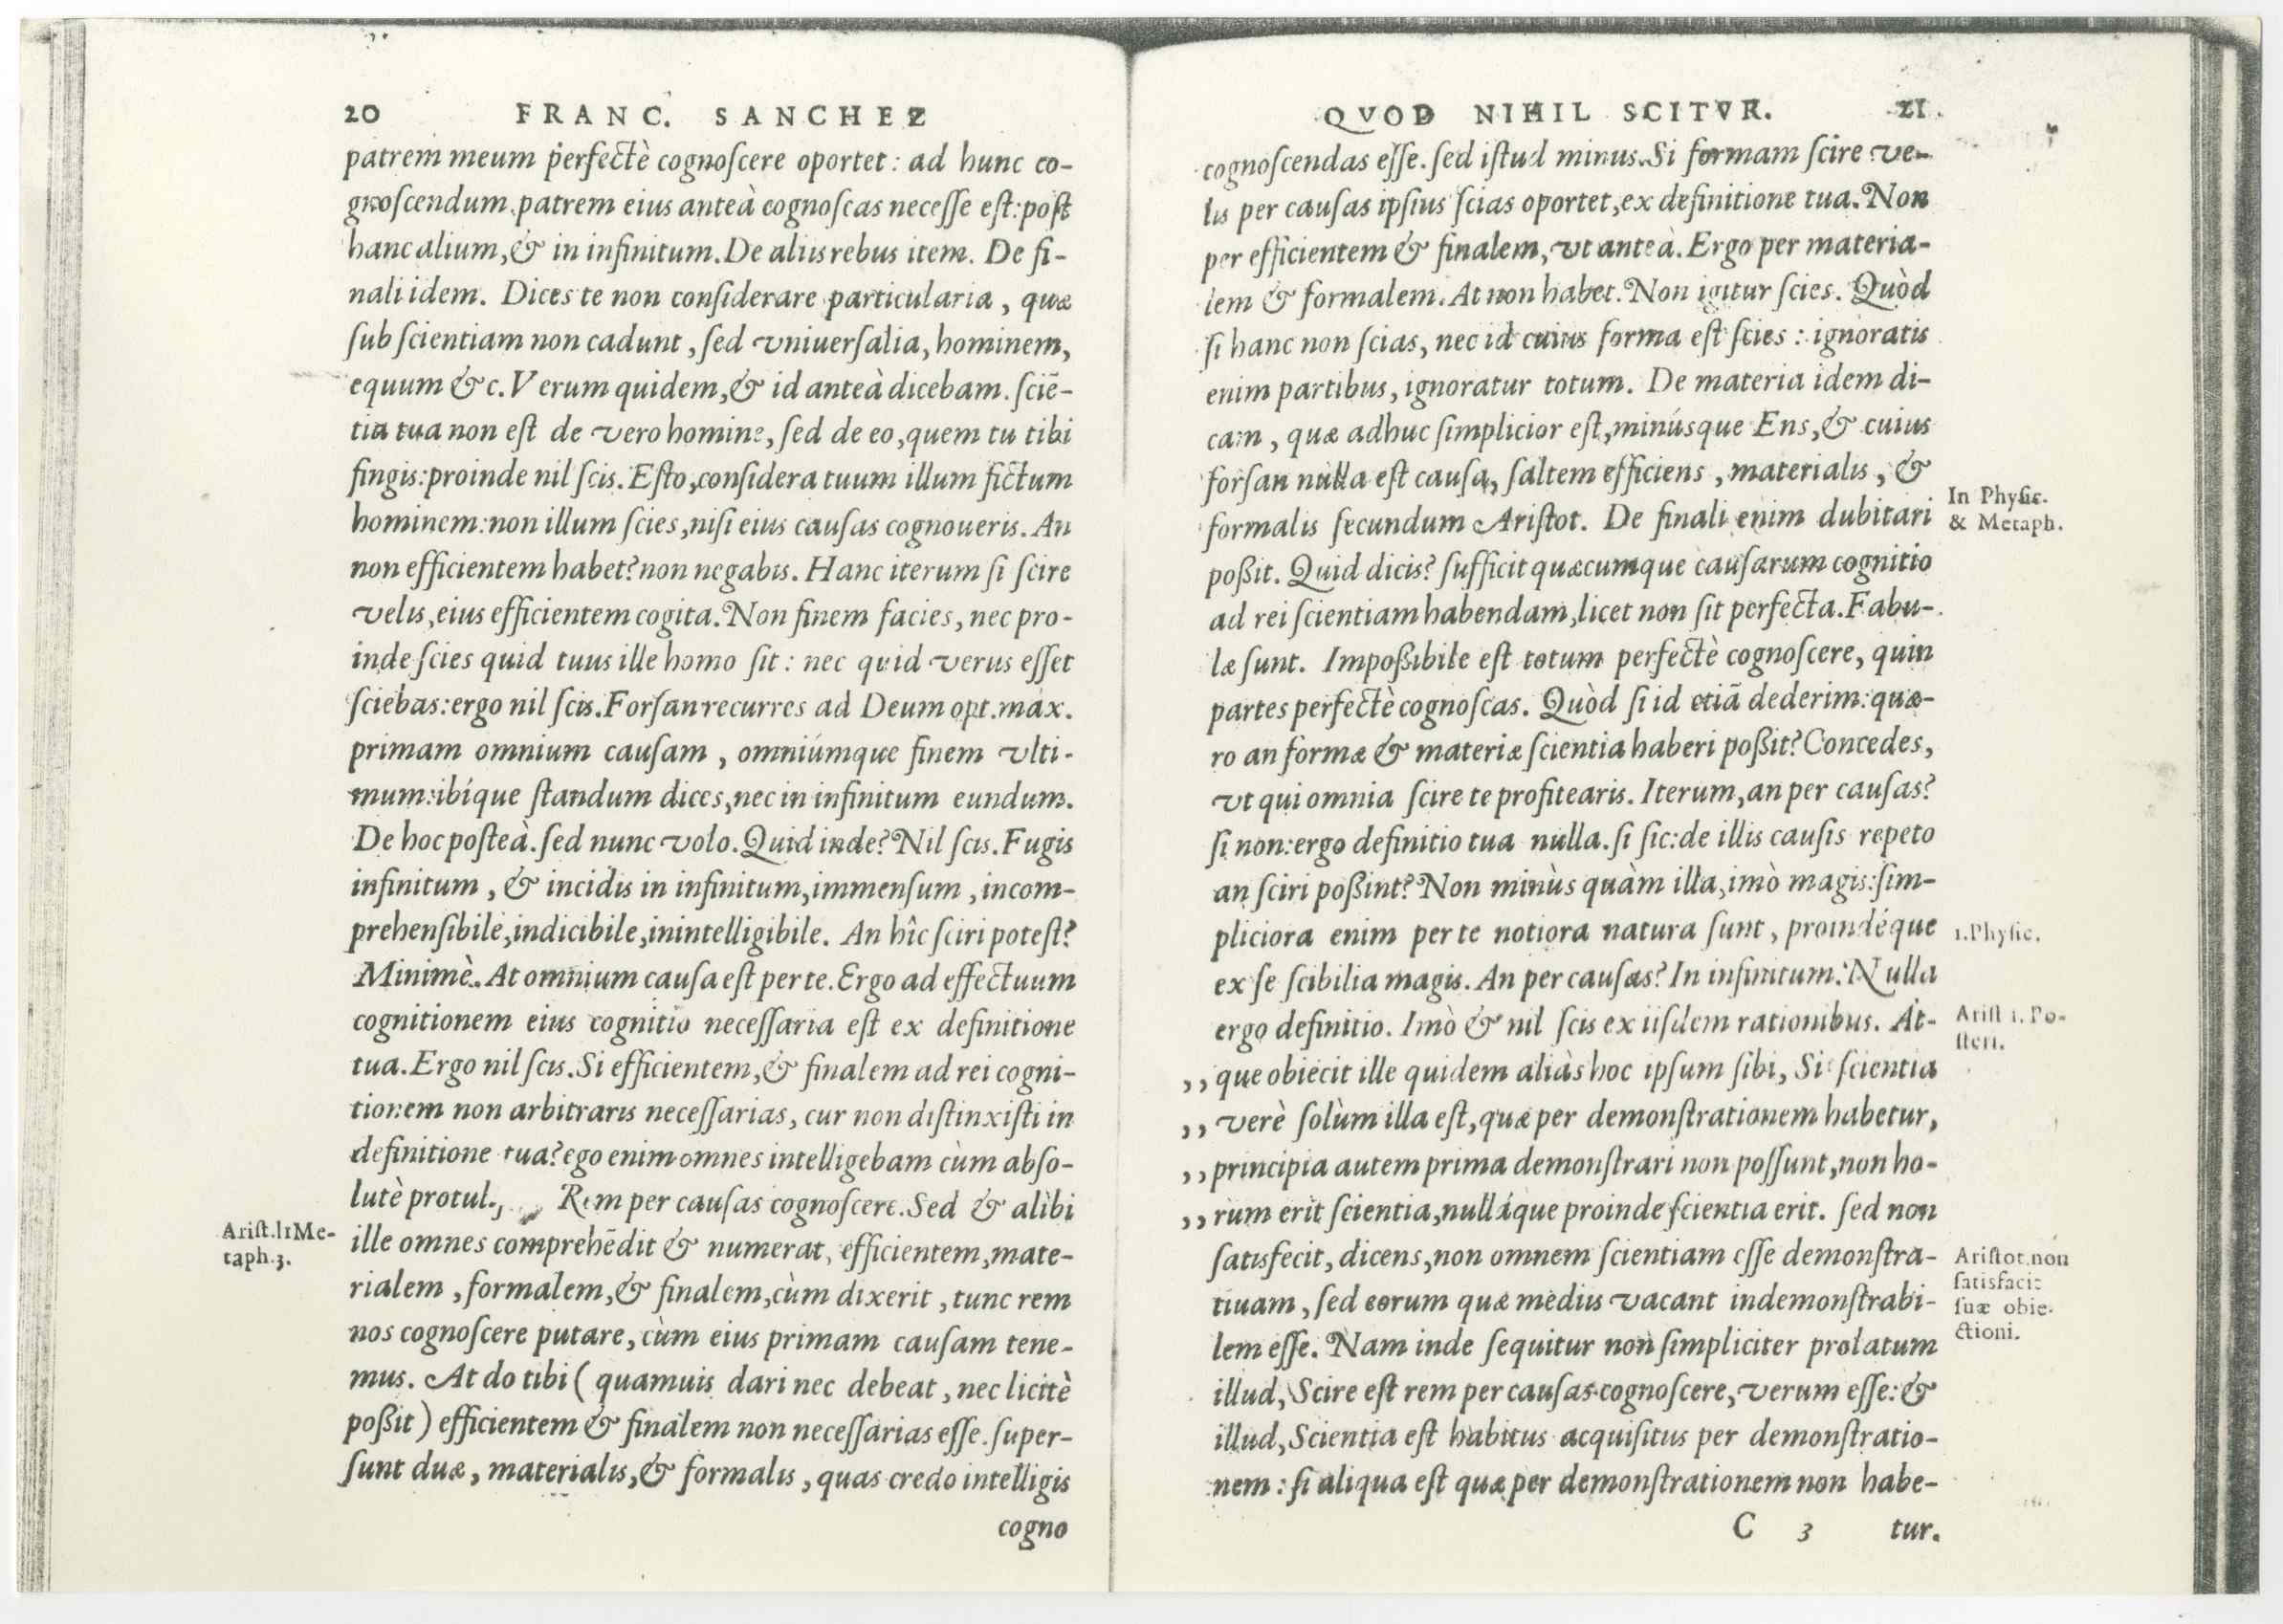 20 FRANC. SANCHEZ
patrem meum perfectè cognoſcere oportet: ad hunc co-
gnoſcendum patrem eius anteà cognoſcas neceſſe eſt: poſt
hanc alium, & in infinitum. De aliis rebus item. De fi-
nali idem. Dices te non conſiderare particularia, quæ
ſub ſcientiam non cadunt, ſed vniuerſalia, hominem,
equum &c. Verum quidem, & id anteà dicebam. ſciē-
tia tua non eſt de vero homine, ſed de eo, quem tu tibi
fingis: proinde nil ſcis. Eſto, conſidera tuum illum fictum
hominem: non illum ſcies, niſi eius cauſas cognoueris. An
non efficientem habet? non negabis. Hanc iterum ſi ſcire
velis, eius efficientem cogita. Non finem facies, nec pro-
inde ſcies quid tuus ille homo ſit: nec quid verus eſſet
ſciebas: ergo nil ſcis. Forſan recurres ad Deum opt. máx.
primam omnium cauſam, omniúmque finem vlti-
mum: ibíque ſtandum dices, nec in infinitum eundum.
De hoc poſteà. ſed nunc volo. Quid inde? Nil ſcis. Fugis
infinitum, & incidis in infinitum, immenſum, incom-
prehenſibile, indicibile, inintelligibile. An hîc ſciri poteſt?
Minimè. At omnium cauſa eſt per te. Ergo ad effectuum
cognitionem eius cognitio neceſſaria eſt ex definitione
tua. Ergo nil ſcis. Si efficientem, & finalem ad rei cogni-
tionem non arbitraris neceſſarias, cur non diſtinxiſti in
definitione tua? ego enim omnes intelligebam cùm abſo-
lutè protul., Rem per cauſas cognoſcere. Sed & alìbi
Ariſt. l1 Me-
taph. 3.
ille omnes comprehēdit & numerat, efficientem, mate-
rialem, formalem, & finalem, cùm dixerit, tunc rem
nos cognoſcere putare, cùm eius primam cauſam tene-
mus. At do tibi (quamuis dari nec debeat, nec licitè
poßit) efficientem & finalem non neceſſarias eſſe. ſuper-
ſunt duæ, materialis, & formalis, quas credo intelligis
cogno
QVOD NIHIL SCITVR. 21
cognoſcendas eſſe. ſed iſtud minus. Si formam ſcire ve-
lis per cauſas ipſius ſcias oportet, ex definitione tua. Non
per efficientem & finalem, vt anteà. Ergo per materia-
lem & formalem. At non habet. Non igitur ſcies. Quòd
ſi hanc non ſcias, nec id cuius forma eſt ſcies: ignoratis
enim partibus, ignoratur totum. De materia idem di-
cam, quæ adhuc ſimplicior eſt, minúsque Ens, & cuius
forſan nulla eſt cauſa, ſaltem efficiens, materialis, &
formalis ſecundum Ariſtot. De finali enim dubitari
In Phyſic.
& Metaph.
poßit. Quid dicis? ſufficit quæcumque cauſarum cognitio
ad rei ſcientiam habendam, licet non ſit perfecta. Fabu-
læ ſunt. Impoßibile eſt totum perfectè cognoſcere, quin
partes perfectè cognoſcas. Quòd ſi id etiā dederim: quæ-
ro an formæ & materiæ ſcientia haberi poßit? Concedes,
vt qui omnia ſcire te profitearis. Iterum, an per cauſas?
ſi non: ergo definitio tua nulla. ſi ſic: de illis cauſis repeto
an ſciri poßint? Non minùs quàm illa, imò magis: ſim-
pliciora enim per te notiora natura ſunt, proindéque
1. Phyſic.
ex ſe ſcibilia magis. An per cauſas? In infinitum. Nulla
ergo definitio. Imò & nil ſcis ex iiſdem rationibus. At-
Ariſt 1. Po-
ſteri.
,, que obiecit ille quidem aliàs hoc ipſum ſibi, Si ſcientia
,, verè ſolùm illa eſt, quæ per demonſtrationem habetur,
,, principia autem prima demonſtrari non poſſunt, non ho-
,, rum erit ſcientia, nulláque proinde ſcientia erit. ſed non
ſatisfecit, dicens, non omnem ſcientiam eſſe demonſtra-
tiuam, ſed eorum quæ mediis vacant indemonſtrabi-
lem eſſe. Nam inde ſequitur non ſimpliciter prolatum
Ariſtot. non
ſatisfacit
ſuæ obie-
ctioni.
illud, Scire eſt rem per cauſas cognoſcere, verum eſſe: &
illud, Scientia eſt habitus acquiſitus per demonſtratio-
nem: ſi aliqua eſt quæ per demonſtrationem non habe-
C 3 tur.